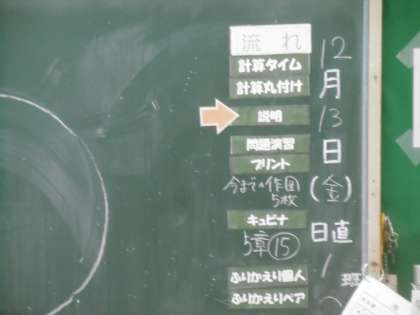 流れ
計算タイム
計算丸付け
説明
問題演習
プリント
今までの作図
5枚
キュビナ
5章⑮
ふりかえり個人
ふりかえりペア
12
月
13
日
(金)
日直
1
班